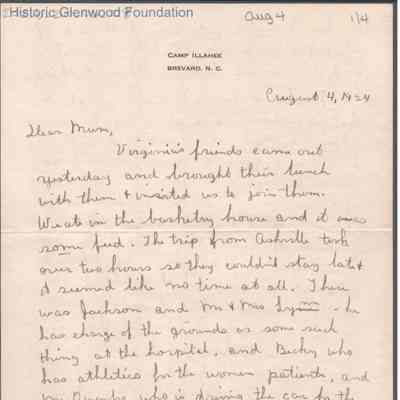 Historic Glenwood Foundation
Aug 4 1/4
CAMP ILLAHEE
BREVARD, N. C.
August 4, 1924
Dear Mum,
Virginia's friends came out
yesterday and brought their lunch
with them & invited us to join them.
We ate in the basketry house and it was
some feed. The trip from Ashville took
over two hours so they couldn't stay late &
it seemed like no time at all. There
was Jackson and Mr & Mrs - he
has charge of the grounds or some such
thing at the hospital, and Becky who
has athletics for the women patients, and
who is driving the car for the